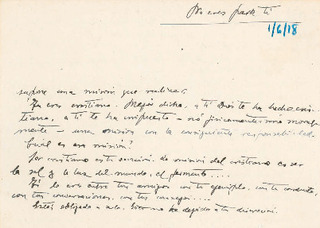 No eres para ti
1/6/18
supone una misión que realizar.
Ya eres cristiano. Mejor dicho, a ti Dios te ha hecho cris-
tiano, a ti te ha impuesto - no físicamente sino moral-
mente - una misión con la consiguiente responsabilidad.
Cuál es esa misión?
Ser cristiano es la misión del cristiano es ser
la sal y la luz del mundo, el fermento....
tú lo eres entre tus amigos con tu ejemplo, con tu conducta,
con tus conversaciones, con tus consejos....
Estás obligado a ello. Esto no ha dejado a tu discreción.